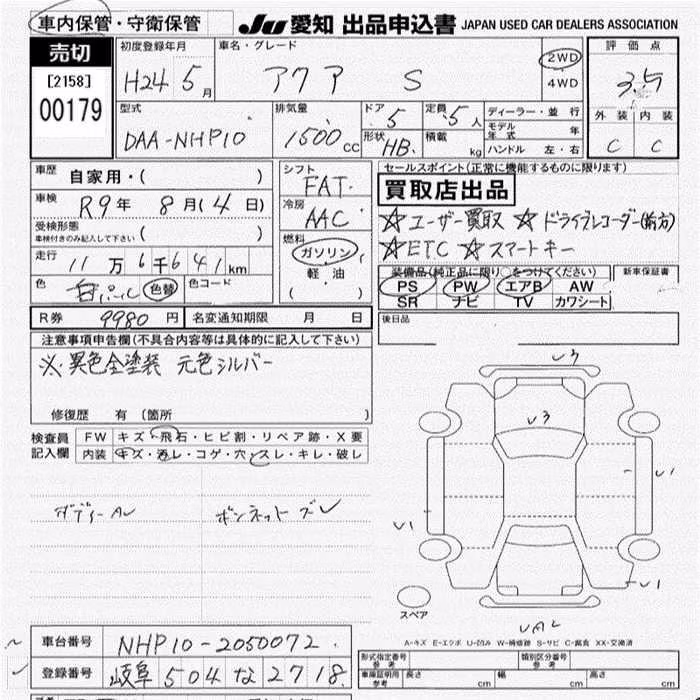 車内保管・守衛保管
JU 愛知 出品申込書 JAPAN USED CAR DEALERS ASSOCIATION
売切
[2158]
00179
初度登録年月
H24 5月
車名・グレード
アクア S
2WD
4WD
評価点
3.5
外装 内装
C C
型式
DAA-NHP10
排気量
1500cc
ドア 5
定員 5人
形状 HB
積載 kg
ディーラー・並行
モデル年式 年
ハンドル 左・右
車歴 自家用・( )
車検 R9年 8月(4日)
受検形態
車検付きのみ記入して下さい ( )
走行 11万6千641km
色 色替 色コード
シフト
FAT
冷房
AAC
燃料
ガソリン
軽油
( )
セールスポイント(正常に機能するものに限ります)
買取店出品
☆ユーザー買取 ☆ドライブレコーダー(前方)
☆ETC ☆スマートキー
装備品(純正品に限り○をつけてください) 新車保証書
PS PW エアB AW
SR ナビ TV カワシート
R券 9980円 名変通知期限 月 日
後日品
注意事項申告欄(不具合内容等は具体的に記入して下さい)
※異色全塗装 元色シルバー
修復歴 有(箇所 )
検査員記入欄
FW キズ・飛石・ヒビ割・リペア跡・X要
内装 キズ・汚レ・コゲ・穴・スレ・キレ・破レ
ボンネット ズレ
U3
U3
U1
U1
U1
スペア
A-キズ E-エクボ U-凹み W-補修跡 S-サビ C-腐食 XX-交換済
車台番号 NHP10-2050072
登録番号 岐阜 504 な 2718
形式指定番号 参考
類別区分番号 参考
車庫証明用 参考
長さ cm 幅 cm 高さ cm